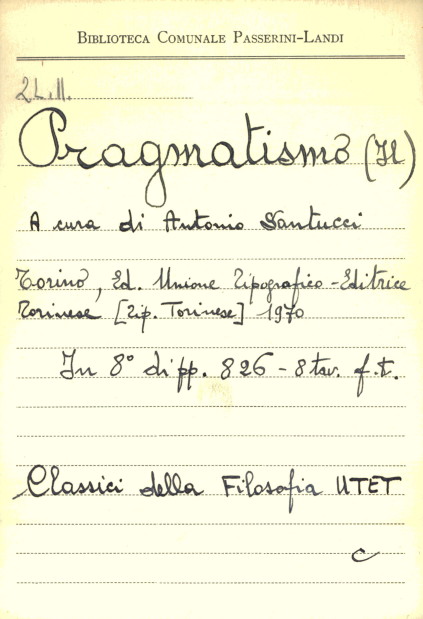 BIBLIOTECA COMUNALE PASSERINI-LANDI
2L.II.
Pragmatismo (Il)
A cura di Antonio Santucci
Torino, Ed. Unione Tipografico-Editrice
Torinese [Tip. Torinese] 1970
In 8° di pp. 826 - 8 tav. f.t.
Classici della Filosofia UTET
C